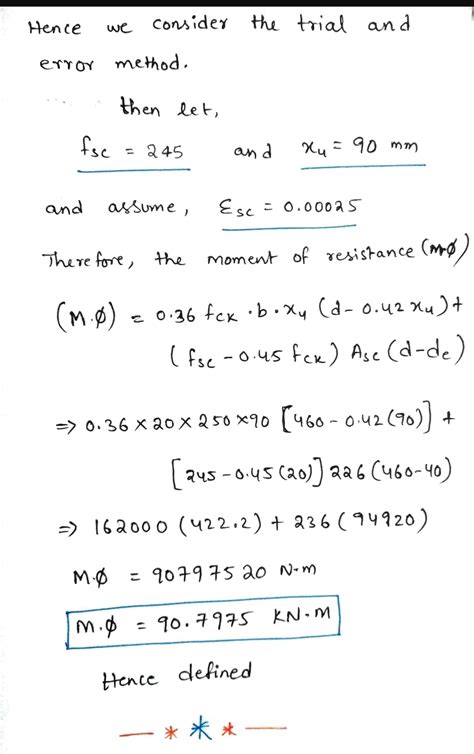 Hence we consider the trial and
error method.
then let,
fsc = 245 and xu = 90 mm
and assume, Esc = 0.00025
Therefore, the moment of resistance (M∅)
(M.∅) = 0.36 fck . b . xu (d - 0.42 xu) +
(fsc - 0.45 fck) Asc (d-dc)
⇒ 0.36 × 20 × 250 × 90 [460 - 0.42 (90)] +
[245 - 0.45 (20)] 226 (460-40)
⇒ 162000 (422.2) + 236 (94920)
M.∅ = 90797520 N-m
M.∅ = 90.7975 KN.M
Hence defined